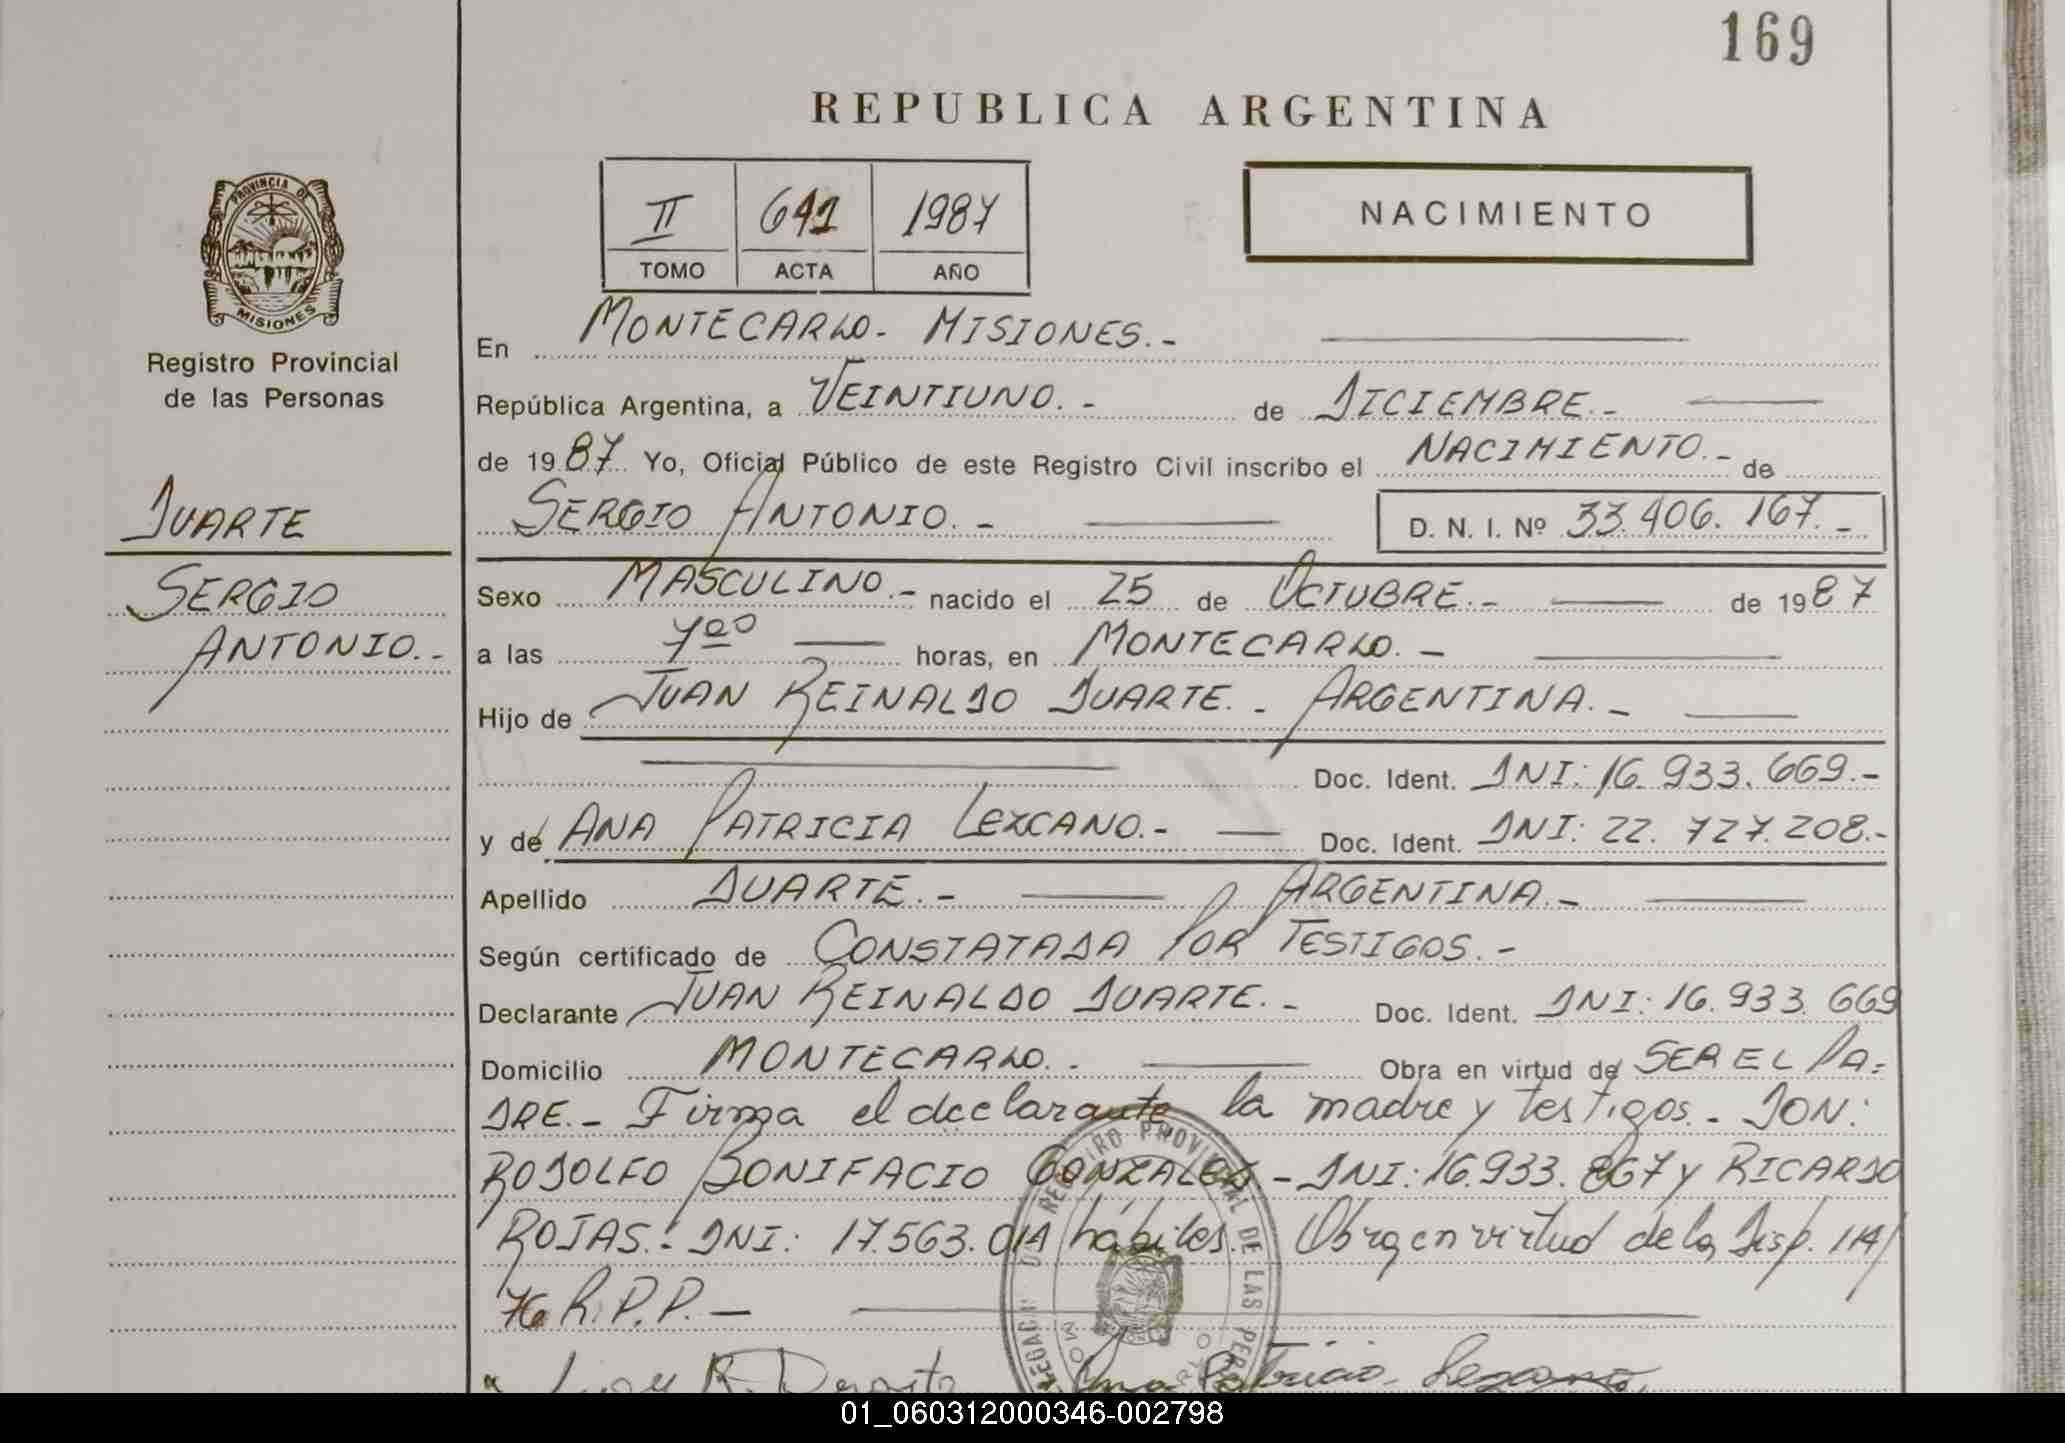 169
REPUBLICA ARGENTINA
PROVINCIA DE
MISIONES
Registro Provincial
de las Personas
II 641 1987
TOMO ACTA AÑO
NACIMIENTO
DUARTE
SERGIO
ANTONIO.-
En MONTECARLO. MISIONES.-
República Argentina, a VEINTIUNO.- de DICIEMBRE.-
de 1987 Yo, Oficial Público de este Registro Civil inscribo el NACIMIENTO.- de
SERGIO ANTONIO.- D. N. I. Nº 33.406.167.-
Sexo MASCULINO.- nacido el 25 de OCTUBRE.- de 1987
a las 7⁰⁰ horas, en MONTECARLO.-
Hijo de JUAN REINALDO DUARTE.- ARGENTINA.-
Doc. Ident. DNI: 16.933.669.-
y de ANA PATRICIA LEZCANO.- Doc. Ident. DNI: 22.727.208.-
Apellido DUARTE.- ARGENTINA.-
Según certificado de CONSTATADA POR TESTIGOS.-
Declarante JUAN REINALDO DUARTE.- Doc. Ident. DNI: 16.933.669
Domicilio MONTECARLO.- Obra en virtud de SER EL PA-
DRE.- Firma el declarante la madre y testigos.- DON:
RODOLFO BONIFACIO GONZALEZ - DNI: 16.933.867 y RICARDO
ROJAS.- DNI: 17.563.014 hábiles. Obra en virtud de la Disp. 114/
76 R.P.P.-
REGISTRO PROVINCIAL DE LAS PER
Juan R. Duarte Ana Patricia Lezcano
01_060312000346-002798